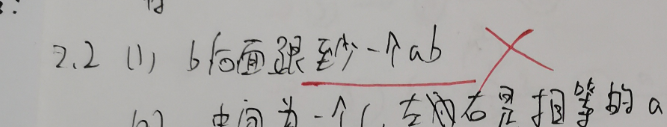 2.2 (1) b后面跟至少一个ab
中间为一个c,左右是相等的a